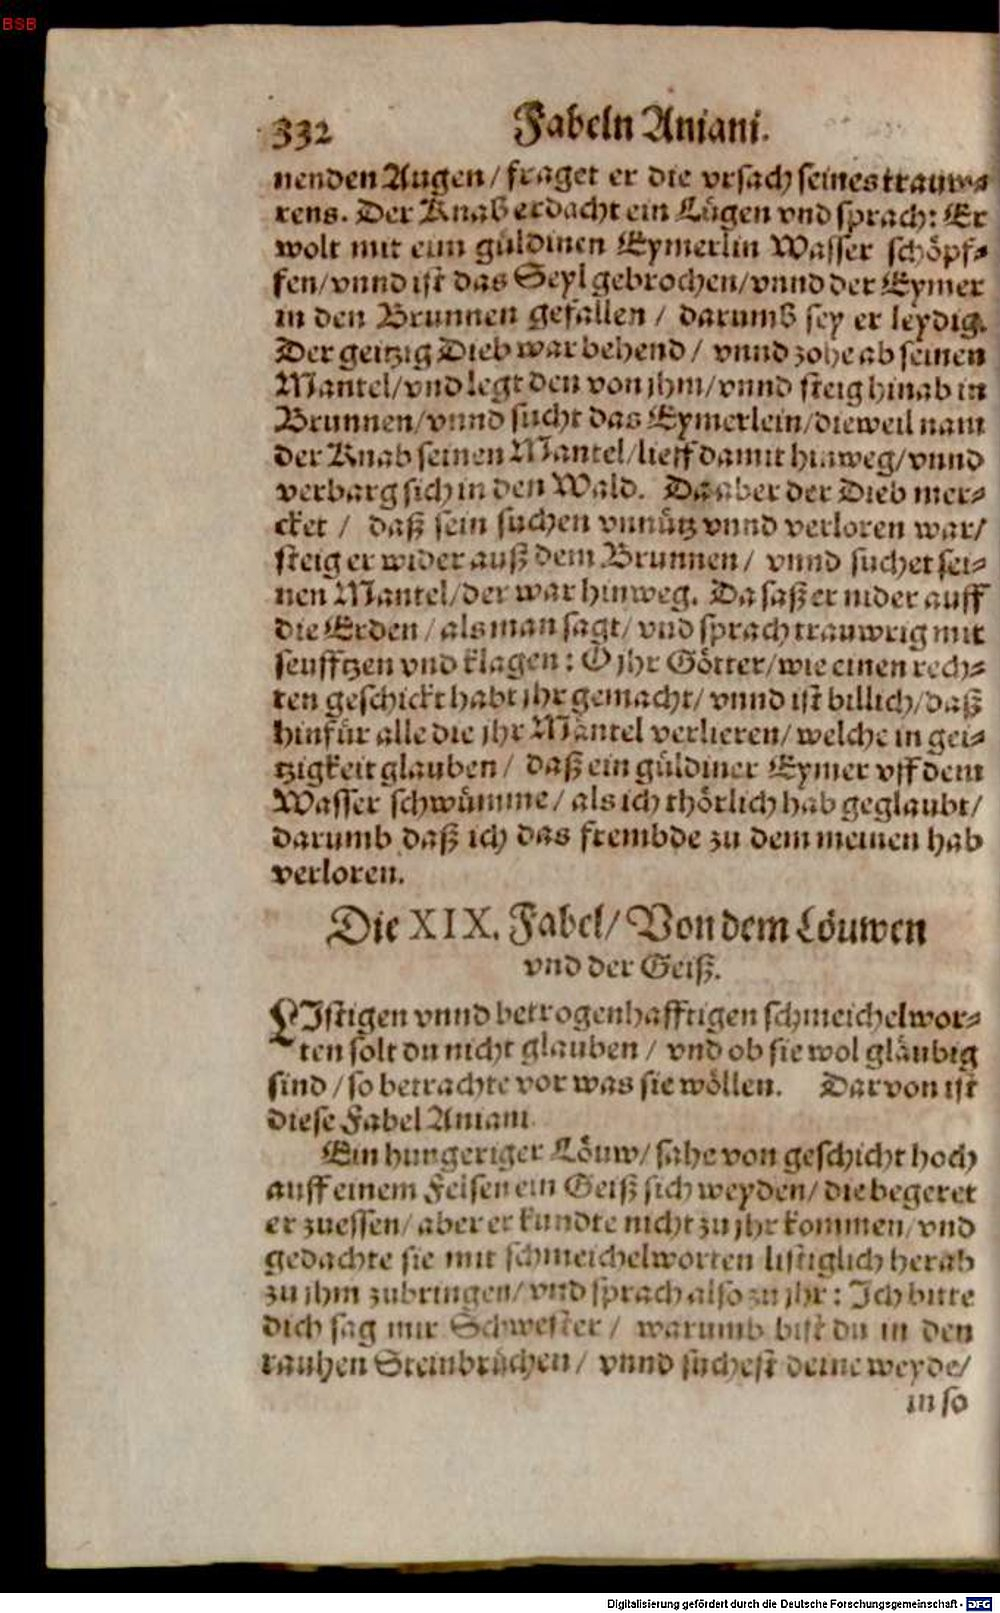 BSB
332 Fabeln Aniani.
nenden Augen / fraget er die vrsach seines trauw⸗
rens. Der Knab erdacht ein Lügen vnd sprach: Er
wolt mit eim güldinen Eymerlin Wasser schöpf⸗
fen / vnnd ist das Seyl gebrochen / vnnd der Eymer
in den Brunnen gefallen / darumb sey er leydig.
Der geitzig Dieb war behend / vnnd zohe ab seinen
Mantel / vnd legt den von jhm / vnnd steig hinab in
Brunnen / vnnd sucht das Eymerlein / dieweil nam
der Knab seinen Mantel / lieff damit hinweg / vnnd
verbarg sich in den Wald. Da aber der Dieb mer⸗
cket / daß sein suchen vnnütz vnnd verloren war /
steig er wider auß dem Brunnen / vnnd suchet sei⸗
nen Mantel / der war hinweg. Da saß er nider auff
die Erden / als man sagt / vnd sprach trauwrig mit
seufftzen vnd klagen: O jhr Götter / wie einen rech⸗
ten geschickt habt jhr gemacht / vnnd ist billich / daß
hinfür alle die jhr Mäntel verlieren / welche in gei⸗
tzigkeit glauben / daß ein güldiner Eymer vff dem
Wasser schwümme / als ich thörlich hab geglaubt /
darumb daß ich das frembde zu dem meinen hab
verloren.
Die XIX. Fabel / Von dem Löuwen
vnd der Geiß.
LIstigen vnnd betrogenhafftigen schmeichelwor⸗
ten solt du nicht glauben / vnd ob sie wol gläubig
sind / so betrachte vor was sie wöllen. Darvon ist
diese Fabel Aniani.
Ein hungeriger Löuw / sahe von geschicht hoch
auff einem Felsen ein Geiß sich weyden / die begeret
er zuessen / aber er kundte nicht zu jhr kommen / vnd
gedachte sie mit schmeichelworten listiglich herab
zu jhm zubringen / vnd sprach also zu jhr: Ich bitte
dich sag mir Schwester / warumb bist du in den
rauhen Steinbrüchen / vnnd suchest deine weyde /
in so
Digitalisierung gefördert durch die Deutsche Forschungsgemeinschaft - DFG